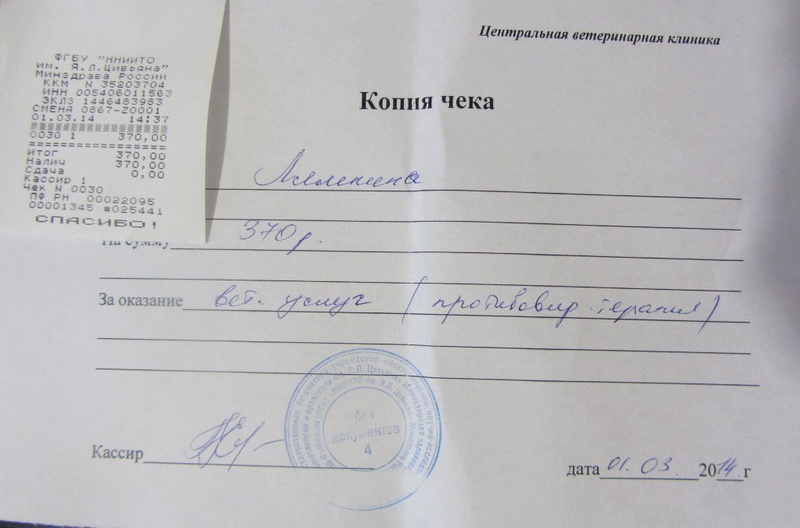 Центральная ветеринарная клиника
Копия чека
ФГБУ "ННИИТО
им. Я.Л.Цивьяна"
Минздрава России
ККМ N 35203704
ИНН 005406011563
ЭКЛЗ 1446483983
СМЕНА 0867-20001
01.03.14 14:37
0030 1 370,00
Итог 370,00
Налич 370,00
Сдача 0,00
Кассир 1
Чек N 0030
ПФ РН 00022095
00001345 #025441
СПАСИБО!
На сумму 370 р.
За оказание вет. услуг (противовир. терапия)
Для
документов
4
Кассир
дата 01.03. 2014 г